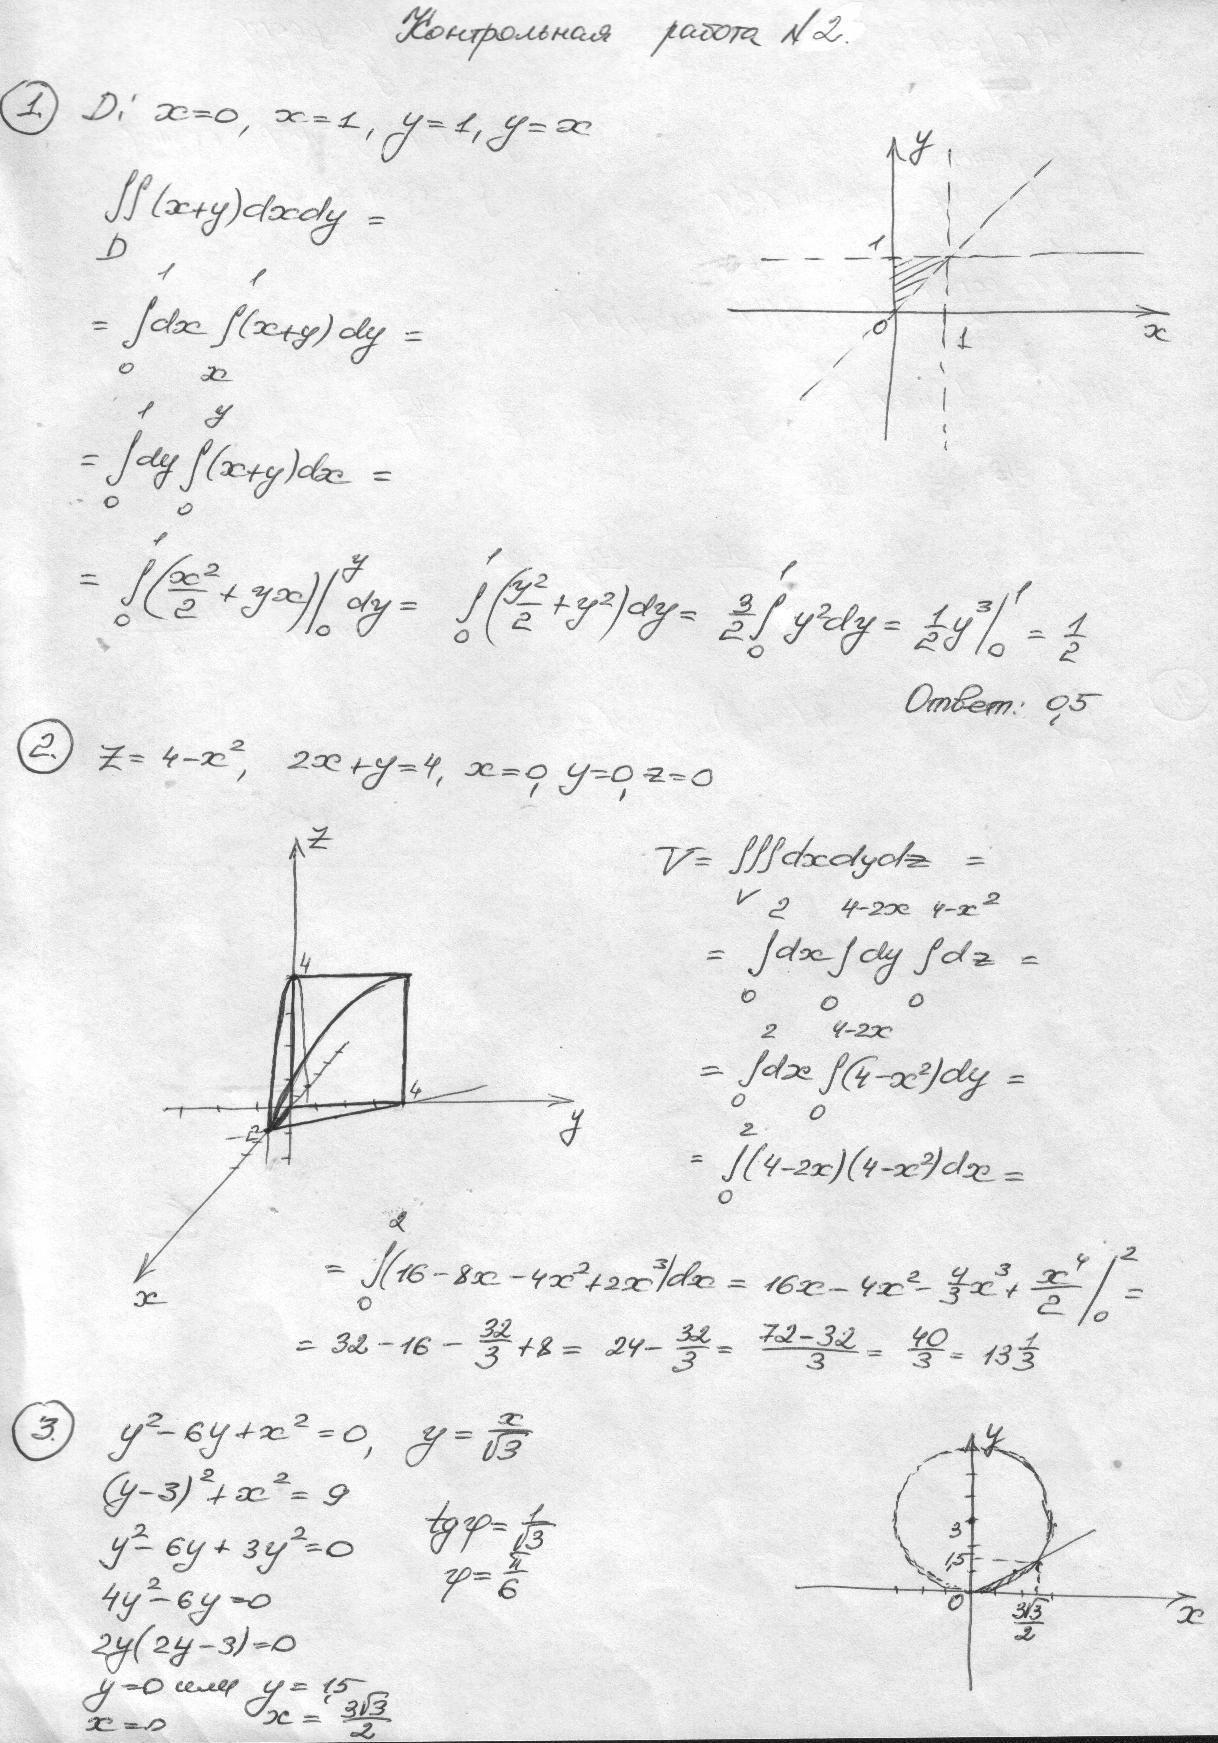 Контрольная работа №2.
1. D: x=0, x=1, y=1, y=x
∬(x+y)dxdy =
D
= ∫₀¹dx ∫ₓ¹(x+y)dy =
= ∫₀¹dy ∫₀ʸ(x+y)dx =
= ∫₀¹(x²/2 + yx)|₀ʸ dy = ∫₀¹(y²/2 + y²)dy = 3/2 ∫₀¹ y²dy = 1/2 y³|₀¹ = 1/2
Ответ: 0,5
2. Z = 4-x², 2x+y=4, x=0, y=0, z=0
V = ∭dxdydz =
V
= ∫₀²dx ∫₀^(4-2x) dy ∫₀^(4-x²) dz =
= ∫₀²dx ∫₀^(4-2x) (4-x²)dy =
= ∫₀²(4-2x)(4-x²)dx =
= ∫₀²(16-8x-4x²+2x³)dx = 16x - 4x² - 4/3 x³ + x⁴/2 |₀² =
= 32 - 16 - 32/3 + 8 = 24 - 32/3 = (72-32)/3 = 40/3 = 13 1/3
3. y² - 6y + x² = 0, y = x/√3
(y-3)² + x² = 9
y² - 6y + 3y² = 0
4y² - 6y = 0
2y(2y-3) = 0
y=0 или y = 1,5
x=0 x = 3√3/2
tgφ = 1/√3
φ = π/6
y
1
0
1
x
Z
4
4
y
-2
x
y
3
1,5
0
3√3/2
x